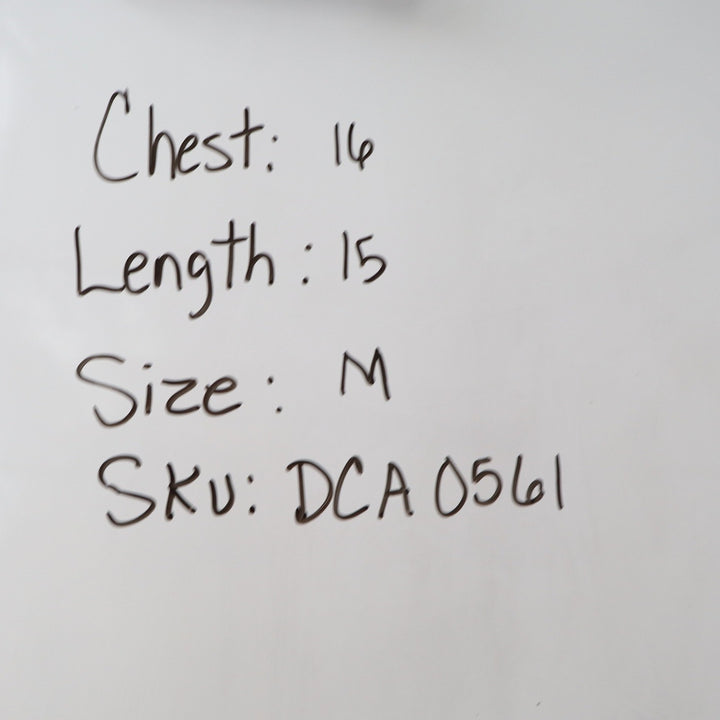 Chest: 16
Length: 15
Size: M
SKU: DCA0561